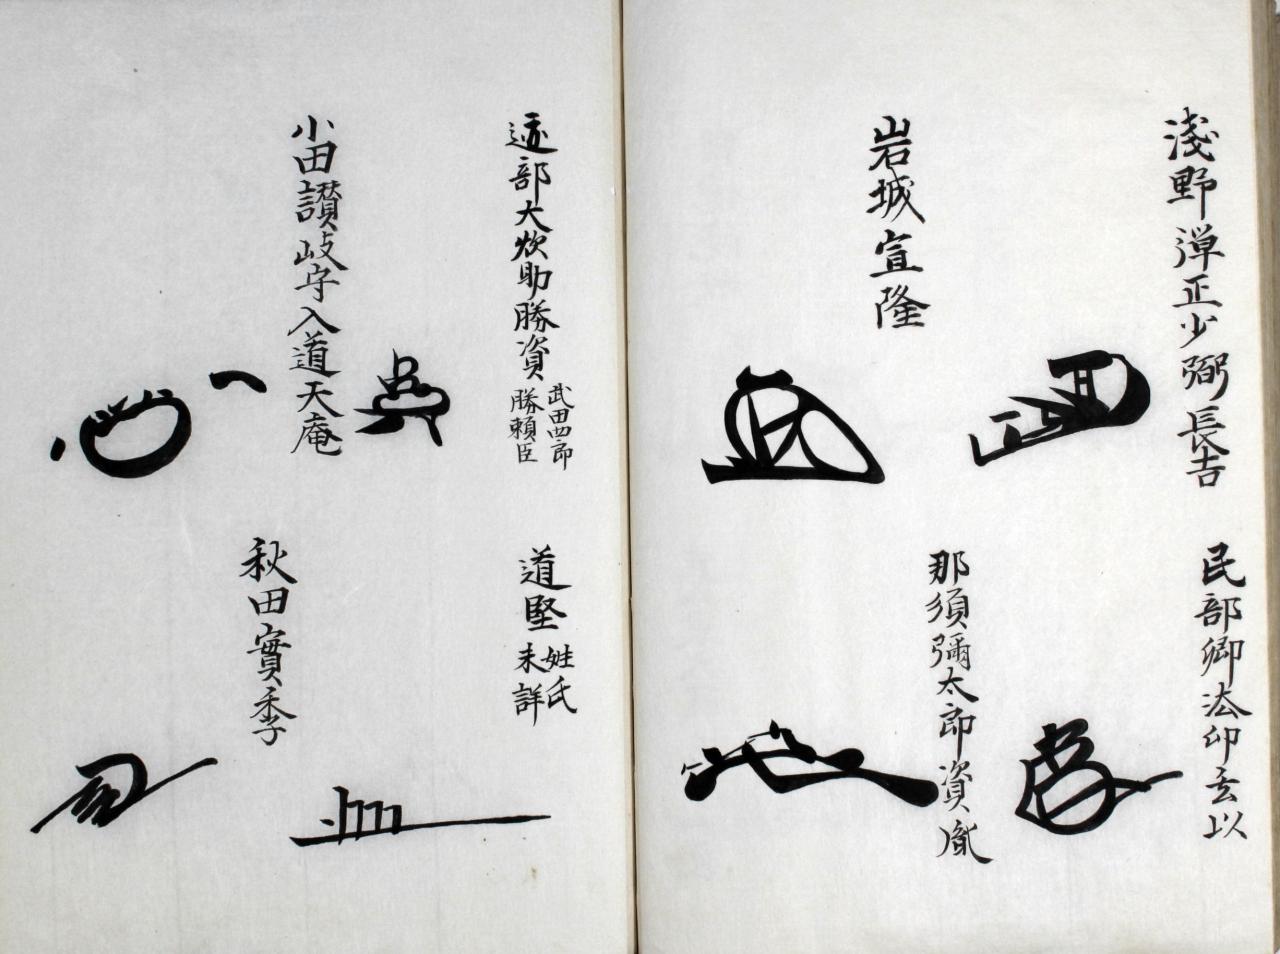 淺野彈正少弼長吉
民部卿法印玄以
岩城宣隆
那須彌太郎資胤
部大炊助勝資
武田四郎
勝頼臣
道堅
姓氏
未詳
小田讃岐守入道天庵
秋田實季